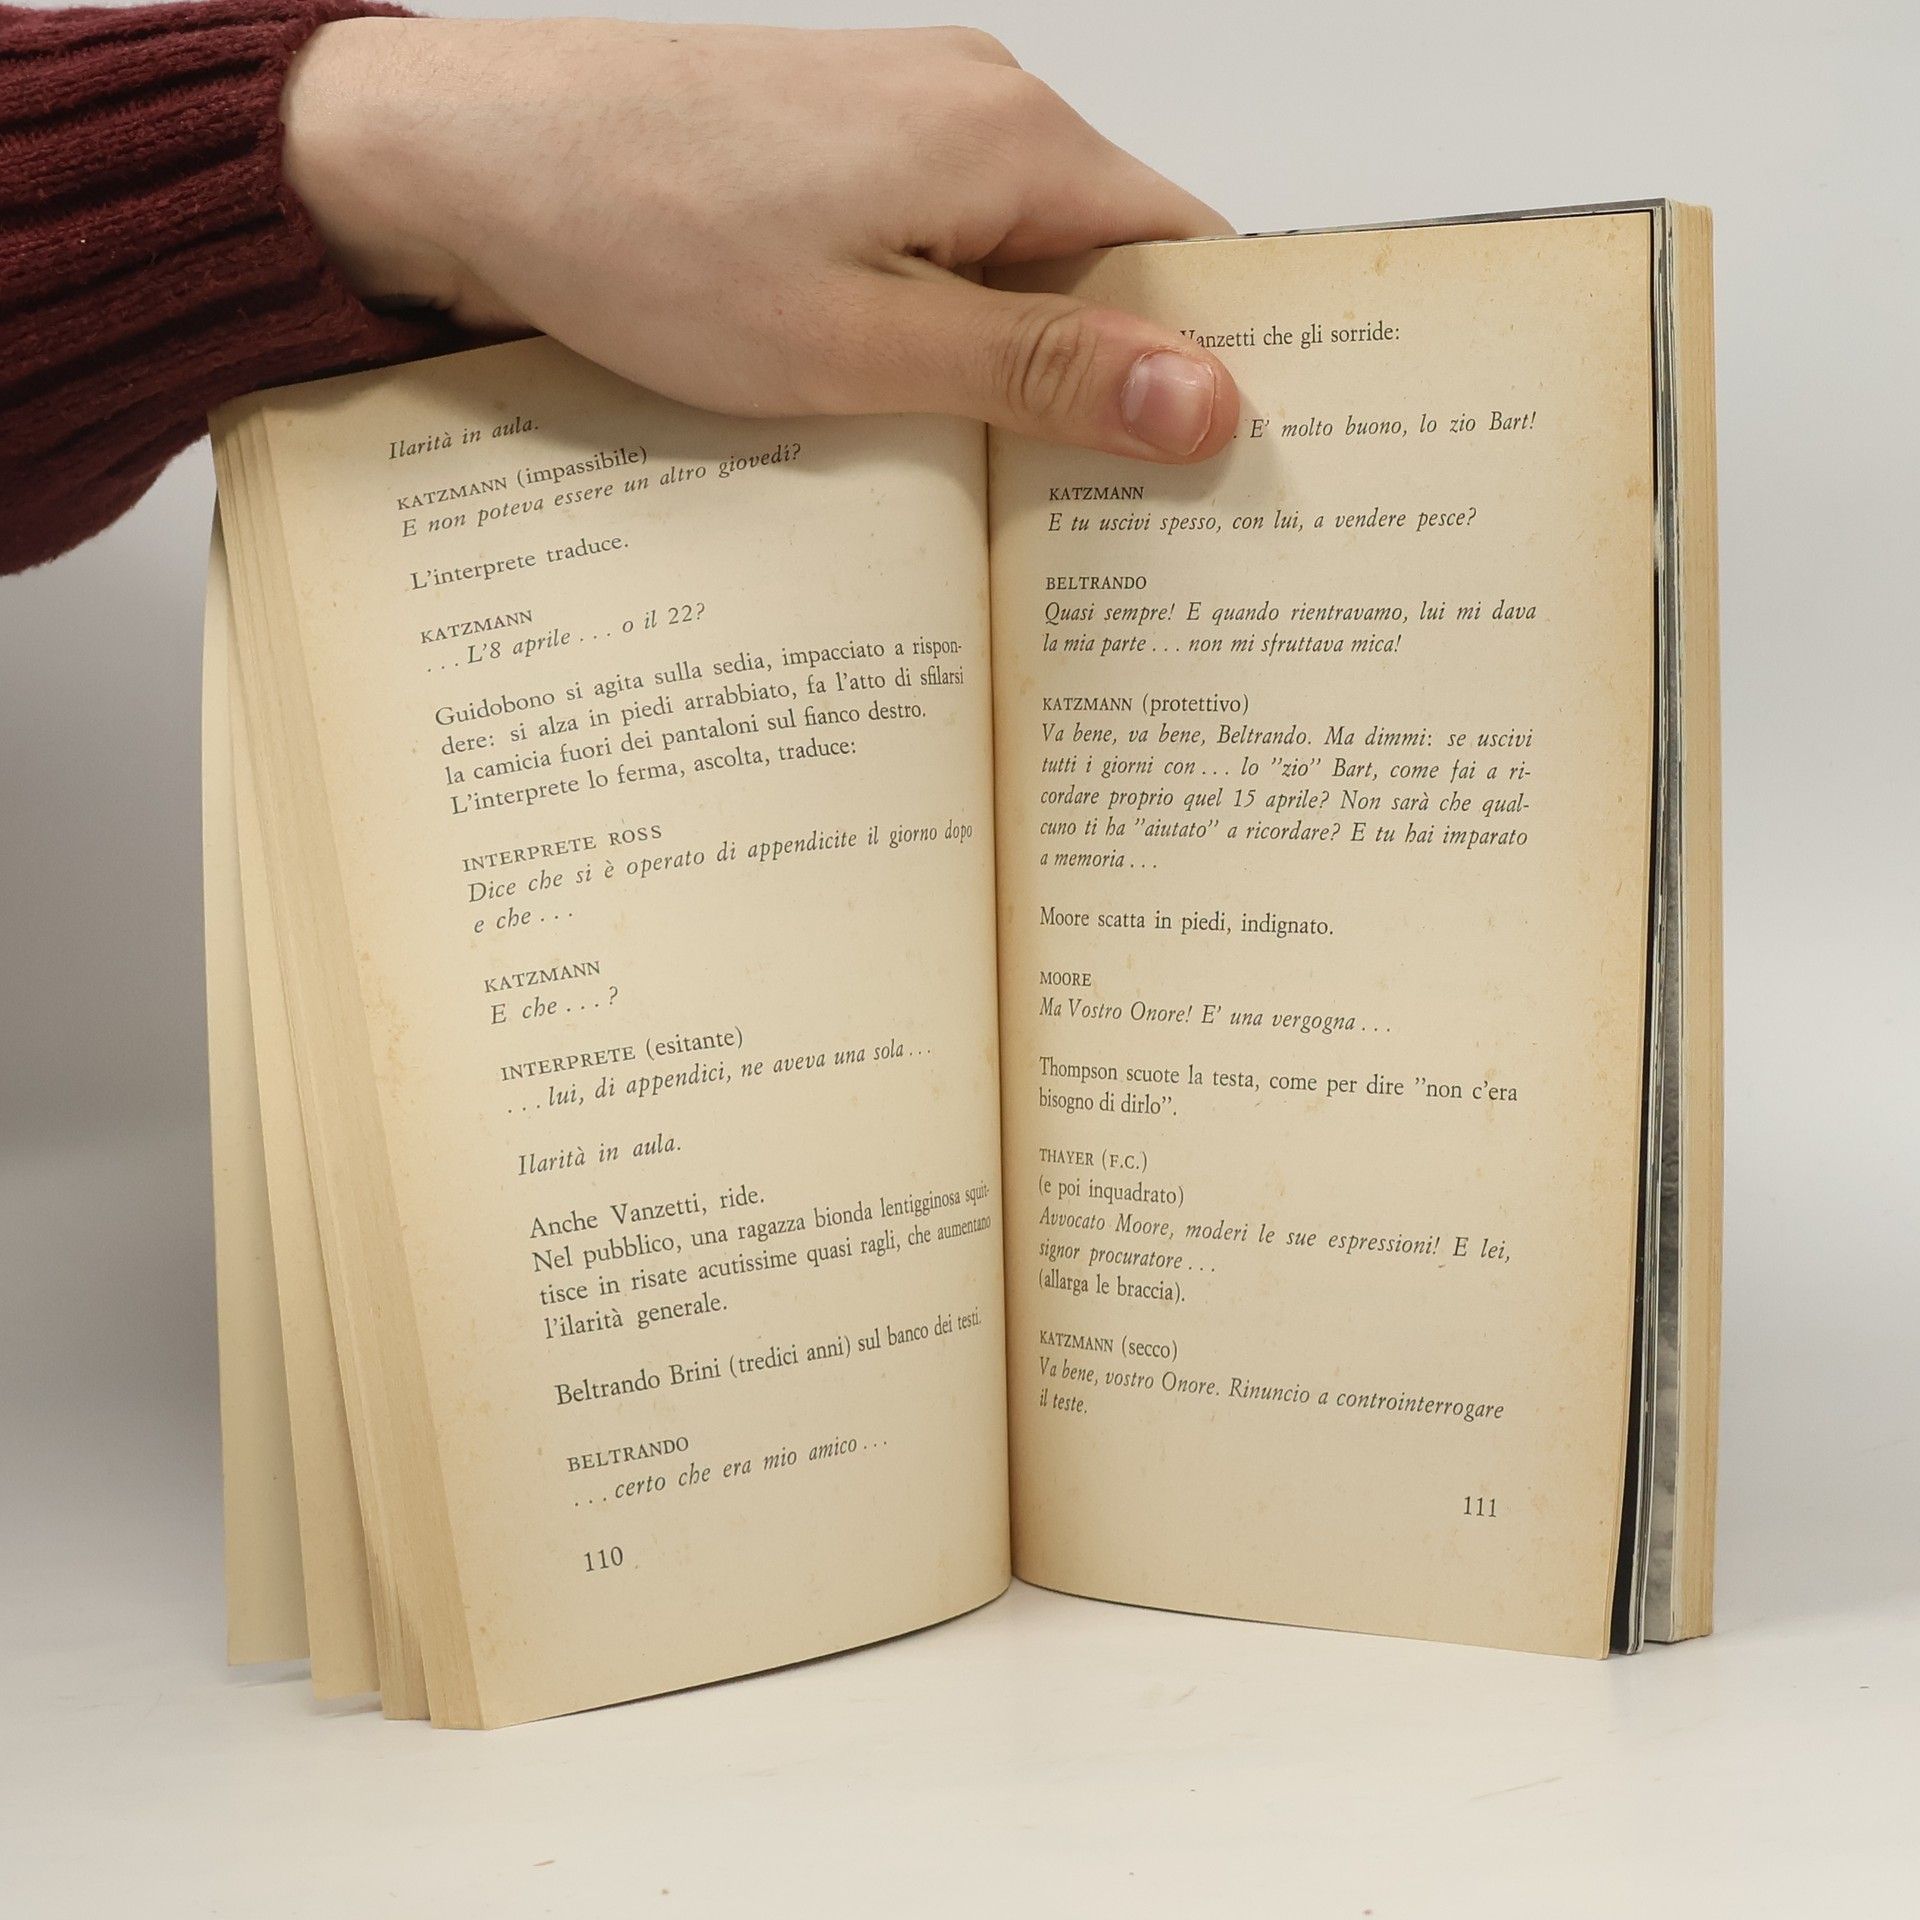 Ilarità in aula.
KATZMANN (impassibile)
E non poteva essere un altro giovedì?
L'interprete traduce.
KATZMANN
. . . L'8 aprile . . . o il 22?
Guidobono si agita sulla sedia, impacciato a rispon-
dere: si alza in piedi arrabbiato, fa l'atto di sfilarsi
la camicia fuori dei pantaloni sul fianco destro.
L'interprete lo ferma, ascolta, traduce:
INTERPRETE ROSS
Dice che si è operato di appendicite il giorno dopo
e che . . .
KATZMANN
E che . . . ?
INTERPRETE (esitante)
. . . lui, di appendici, ne aveva una sola . . .
Ilarità in aula.
Anche Vanzetti, ride.
Nel pubblico, una ragazza bionda lentigginosa squit-
tisce in risate acutissime quasi ragli, che aumentano
l'ilarità generale.
Beltrando Brini (tredici anni) sul banco dei testi.
BELTRANDO
. . . certo che era mio amico . . .
110
Vanzetti che gli sorride:
. E' molto buono, lo zio Bart!
KATZMANN
E tu uscivi spesso, con lui, a vendere pesce?
BELTRANDO
Quasi sempre! E quando rientravamo, lui mi dava
la mia parte . . . non mi sfruttava mica!
KATZMANN (protettivo)
Va bene, va bene, Beltrando. Ma dimmi: se uscivi
tutti i giorni con . . . lo "zio" Bart, come fai a ri-
cordare proprio quel 15 aprile? Non sarà che qual-
cuno ti ha "aiutato" a ricordare? E tu hai imparato
a memoria . . .
Moore scatta in piedi, indignato.
MOORE
Ma Vostro Onore! E' una vergogna . . .
Thompson scuote la testa, come per dire "non c'era
bisogno di dirlo".
THAYER (F.C.)
(e poi inquadrato)
Avvocato Moore, moderi le sue espressioni! E lei,
signor procuratore . . .
(allarga le braccia).
KATZMANN (secco)
Va bene, vostro Onore. Rinuncio a controinterrogare
il teste.
111